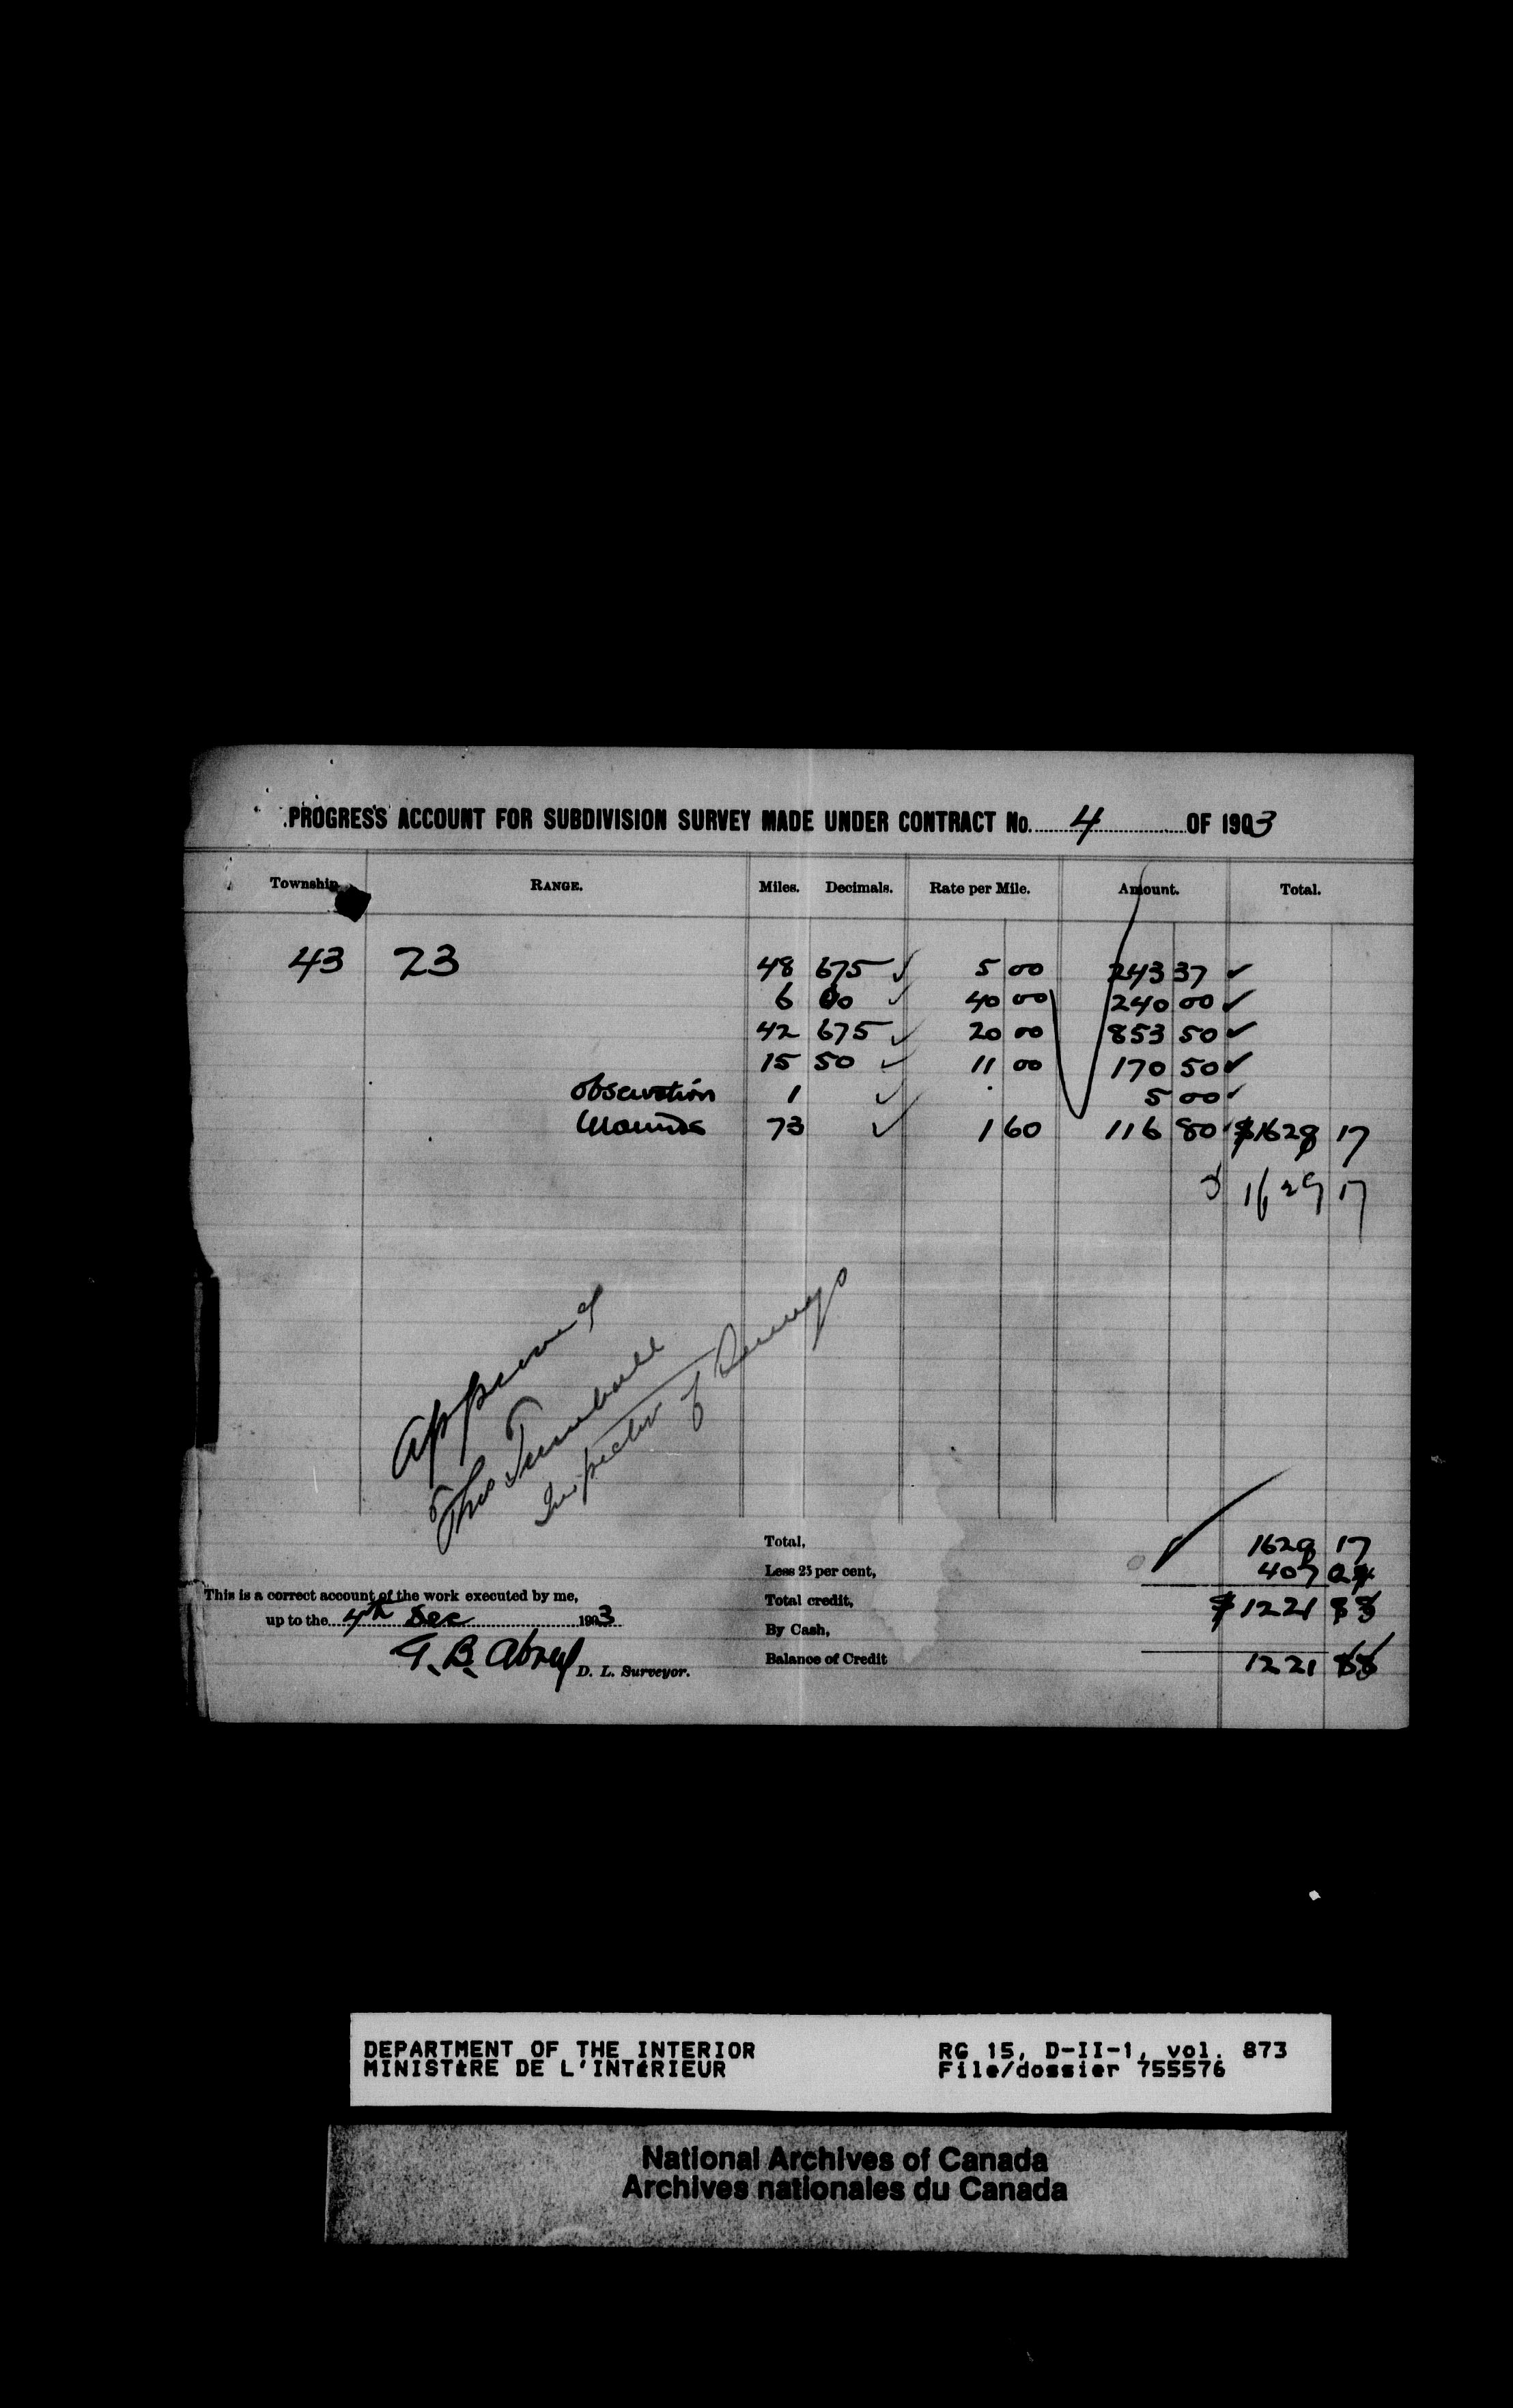 PROGRESS ACCOUNT FOR SUBDIVISION SURVEY MADE UNDER CONTRACT No. 4 OF 1903
Township. RANGE. Miles. Decimals. Rate per Mile. Amount. Total.
43 23 48 675 ✓ 5 00 243 37 ✓
6 00 ✓ 40 00 240 00 ✓
42 675 ✓ 20 00 853 50 ✓
15 50 ✓ 11 00 170 50 ✓
Observation 1 ✓ 5 00 ✓
Mounds 73 ✓ 1 60 116 80 ✓ $1629 17
1629 17
Approved
Thos Turnbull
Inspector of Surveys
Total, 1629 17
Less 25 per cent, 407 29
This is a correct account of the work executed by me,
Total credit, $1221 88
up to the 4th Dec 1903
By Cash,
T. B. Abrey D. L. Surveyor.
Balance of Credit 1221 88
DEPARTMENT OF THE INTERIOR RG 15, D-II-1, vol. 873
MINISTÈRE DE L'INTÉRIEUR File/dossier 755576
National Archives of Canada
Archives nationales du Canada